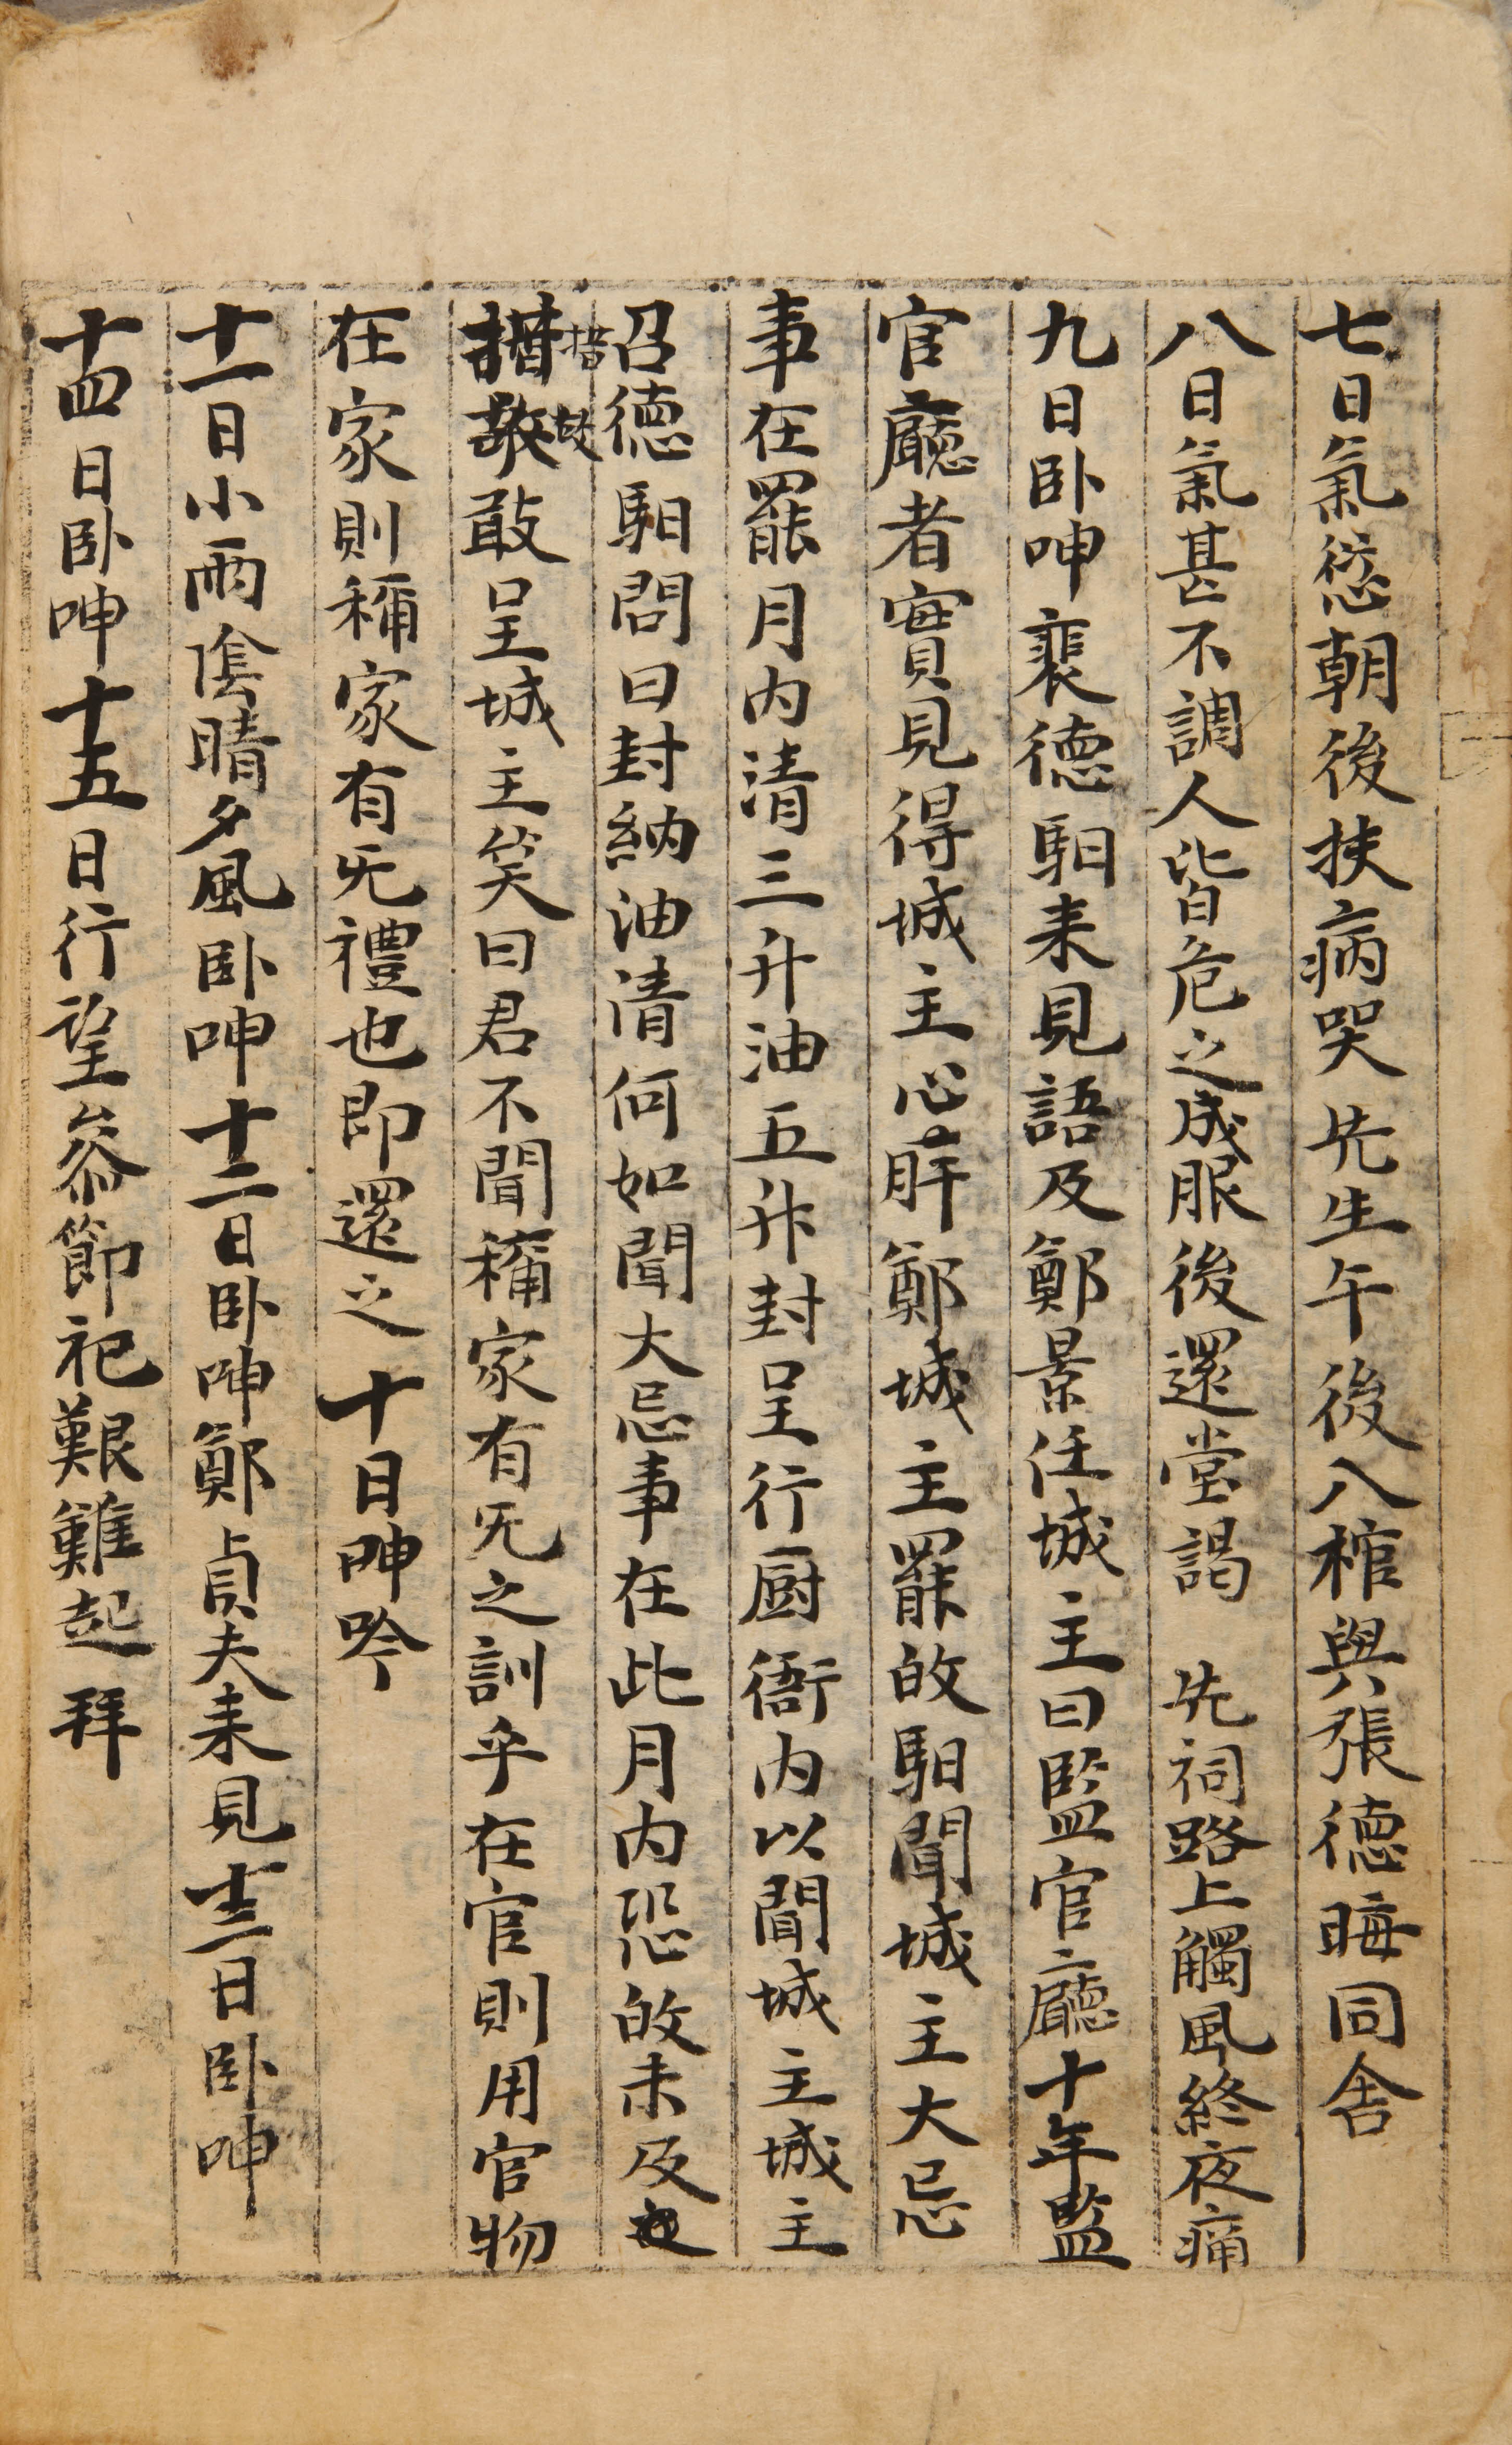 七日氣愆朝後扶病哭 先生午後入棺與張德晦同舍
八日氣甚不調人皆危之成服後還堂謁 先祠路上觸風終夜痛
九日卧呻裴德馹来見語及鄭景任城主曰監官廳十年監
官廳者實見得城主心肝鄭城主罷故馹聞城主大忌
事在罷月内清三升油五升封呈行厨衙内以聞城主城主
召德馹問曰封納油清何如聞大忌事在此月内恐故未及也
措敢呈城主笑曰君不聞稱家有旡之訓乎在官則用官物
措
在家則稱家有旡禮也即還之 十日呻吟
十一日小雨陰晴夕風卧呻十二日卧呻鄭貞夫来見十三日卧呻
十四日卧呻十五日行望参節祀艱難起拜